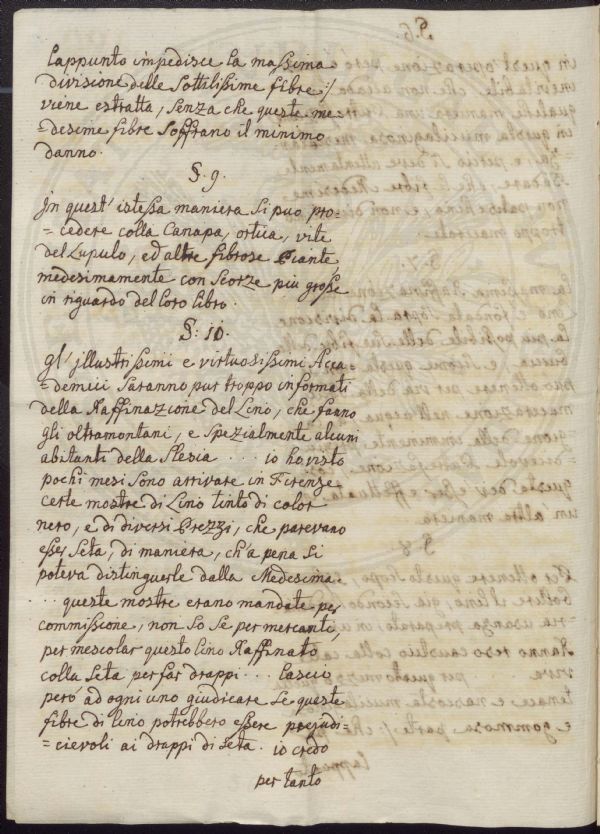 lappunto impedisce la massima
divisione delle sottilissime fibre :/
viene estratta, senza che queste me=
=desime fibre soffrano il minimo
danno.
§. 9.
In quest' istessa maniera si può pro=
=cedere colla Canapa, ortica, vite
del Lupulo, ed altre fibrose Piante
medesimamente con Scorze più grosse
in riguardo del loro libro.
§. 10.
gl' illustrissimi e virtuosissimi Acca=
=demici saranno pur troppo informati
della Raffinazione del Lino, che fanno
gli oltramontani, e spezialmente alcuni
abitanti della Slesia . . . . io ho visto
pochi mesi sono arrivare in Firenze
certe mostre di Lino tinto di color
nero, e di diversi Prezzi, che parevano
esser Seta, di maniera, ch' a pena si
poteva distinguerle dalla Medesima.
. . . queste mostre erano mandate per
commissione, non so se per mercante,
per mescolar questo lino Raffinato
colla Seta per far drappi . . . lascio
però ad ogni uno giudicare se queste
fibre di lino potrebbero essere prejudi=
=cievoli ai drappi di Seta. io credo
per tanto